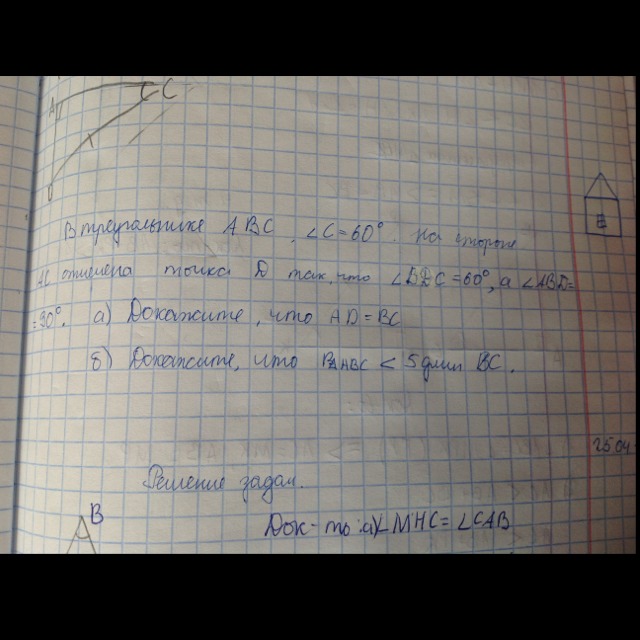 A C C
В треугольнике ABC, ∠C=60°. На стороне
AC отмечена точка D так, что ∠BDC=60°, а ∠ABD=
=30°. а) Докажите, что AD=BC
б) Докажите, что P∆ABC < 5 длин BC.
25.04
Решение задач.
B
Док-ть: а) ∠MHC=∠CAB